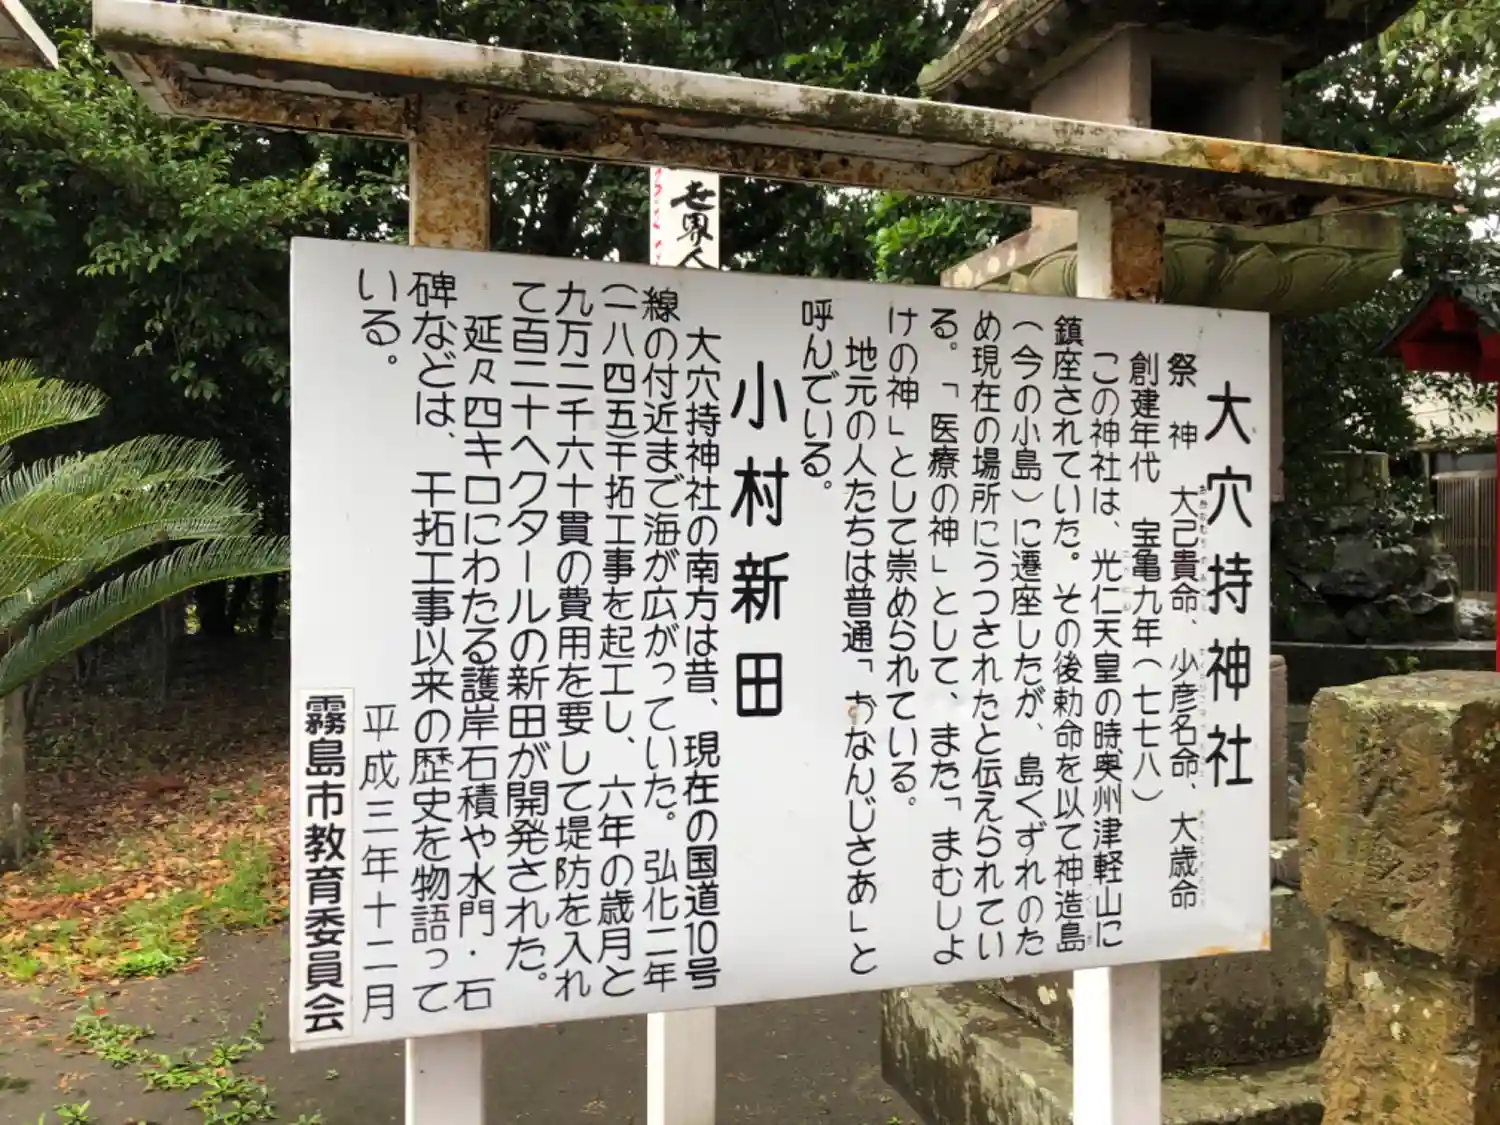 大穴持神社
祭　神　大己貴命、少彦名命、大歳命
創建年代　宝亀九年（七七八）
この神社は、光仁天皇の時奥州津軽山に
鎮座されていた。その後勅命を以て神造島
（今の小島）に遷座したが、島くずれのた
め現在の場所にうつされたと伝えられてい
る。「医療の神」として、また「まむしよ
けの神」として崇められている。
地元の人たちは普通「おなんじさあ」と
呼んでいる。
小村新田
大穴持神社の南方は昔、現在の国道10号
線の付近まで海が広がっていた。弘化二年
（一八四五）干拓工事を起工し、六年の歳月と
九万二千六十貫の費用を要して堤防を入れ
て百二十ヘクタールの新田が開発された。
延々四キロにわたる護岸石積や水門・石
碑などは、干拓工事以来の歴史を物語って
いる。
平成三年十二月
霧島市教育委員会
世界人